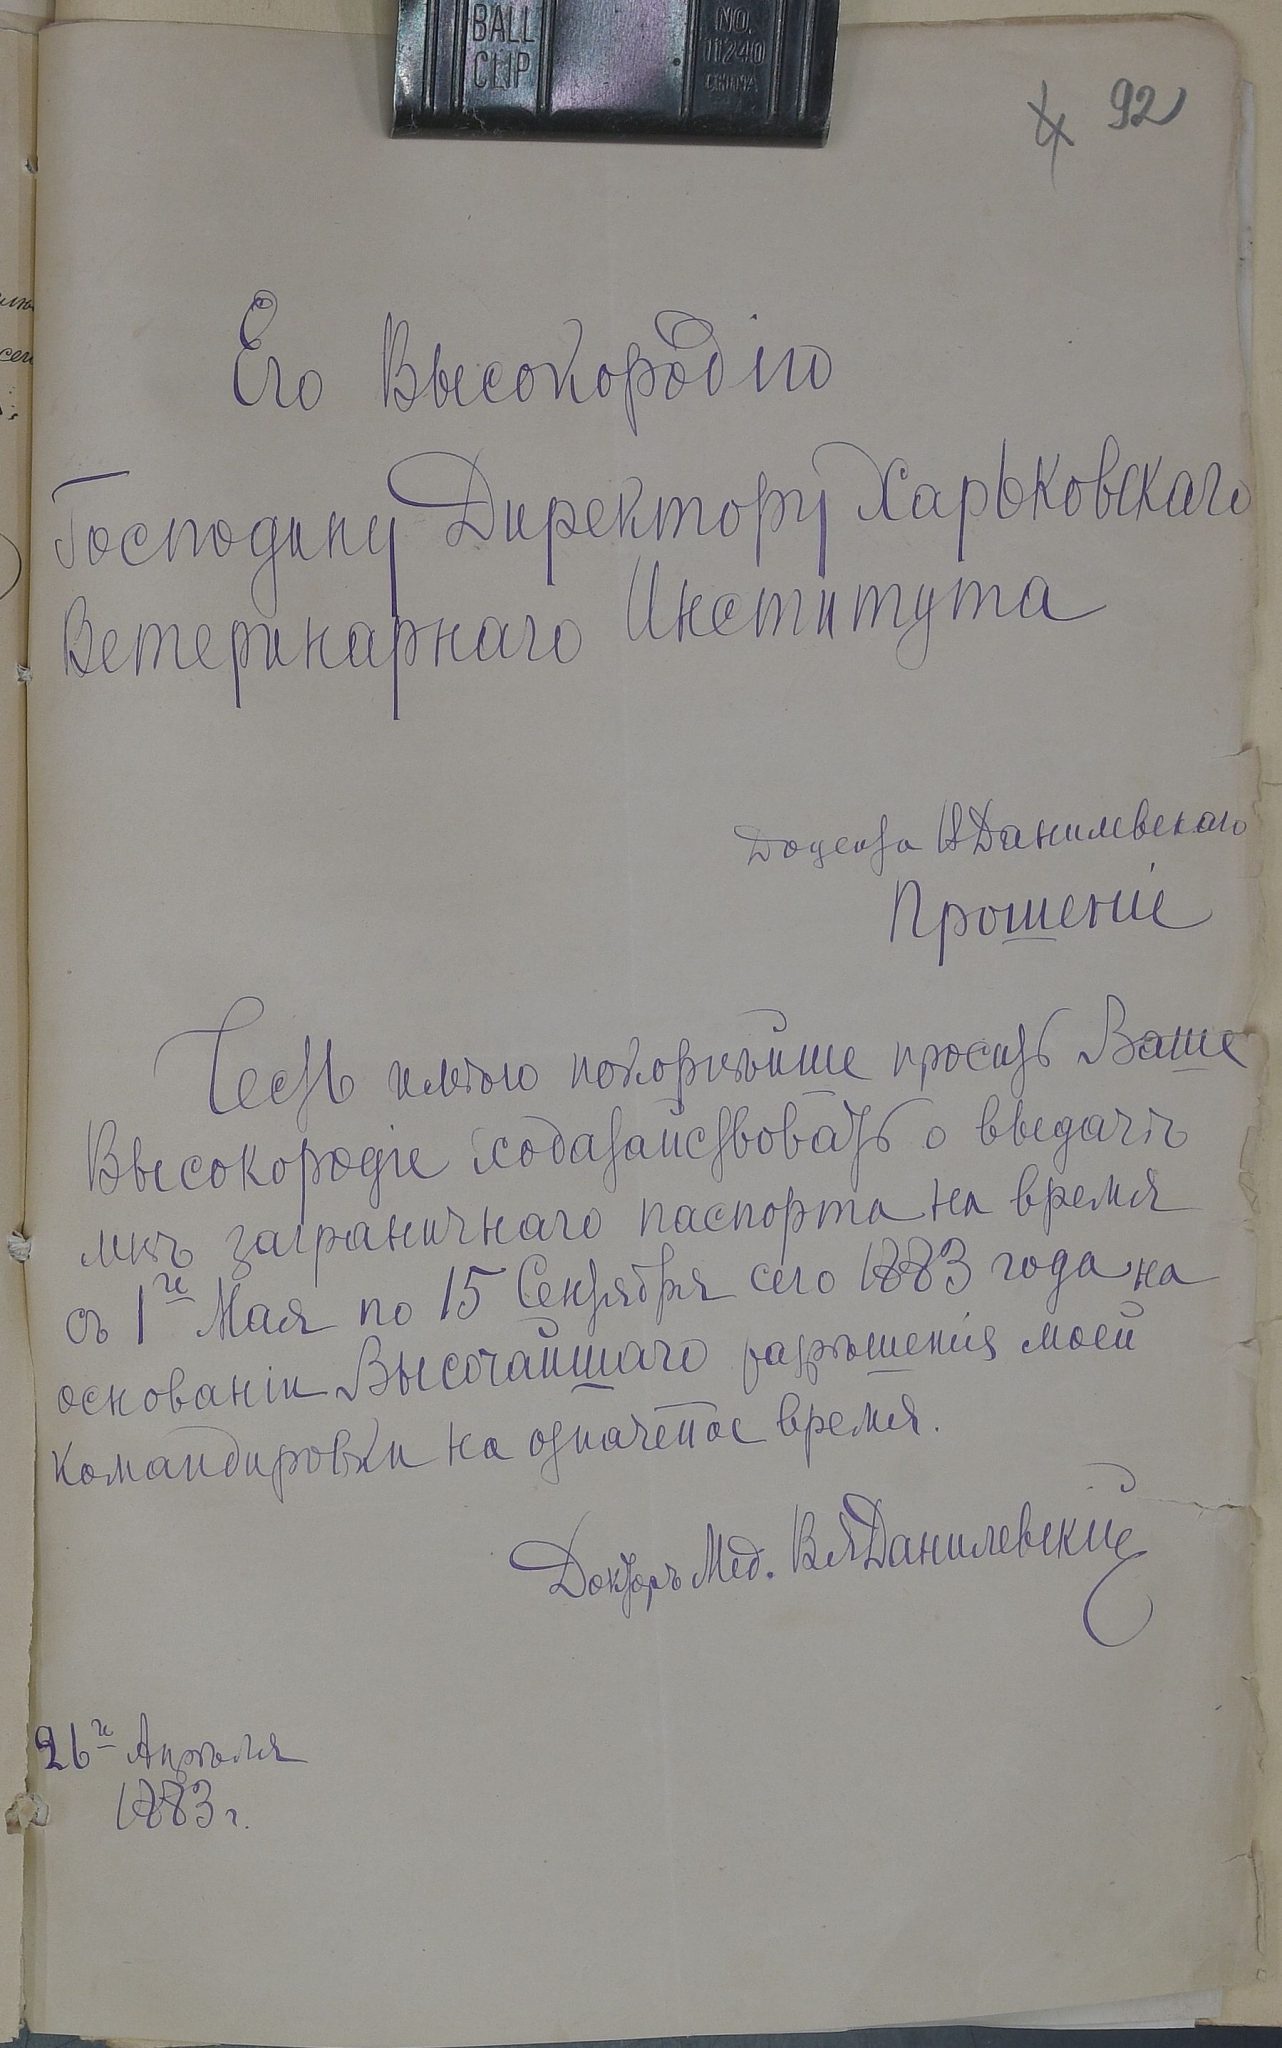 BALL CLIP
NO. 11240 CHINA
92
Его Высокородію
Господину Директору Харьковскаго
Ветеринарнаго Института
Доцента В Данилевскаго
Прошеніе
Честь имѣю покорнѣйше просить Ваше
Высокородіе ходатайствовать о выдачѣ
мнѣ заграничнаго паспорта на время
съ 1го Мая по 15 Сентября сего 1883 года на
основаніи Высочайшаго разрѣшенія моей
командировки на означеное время.
Докторъ Мед. В Я Данилевскій
26го Апрѣля
1883 г.